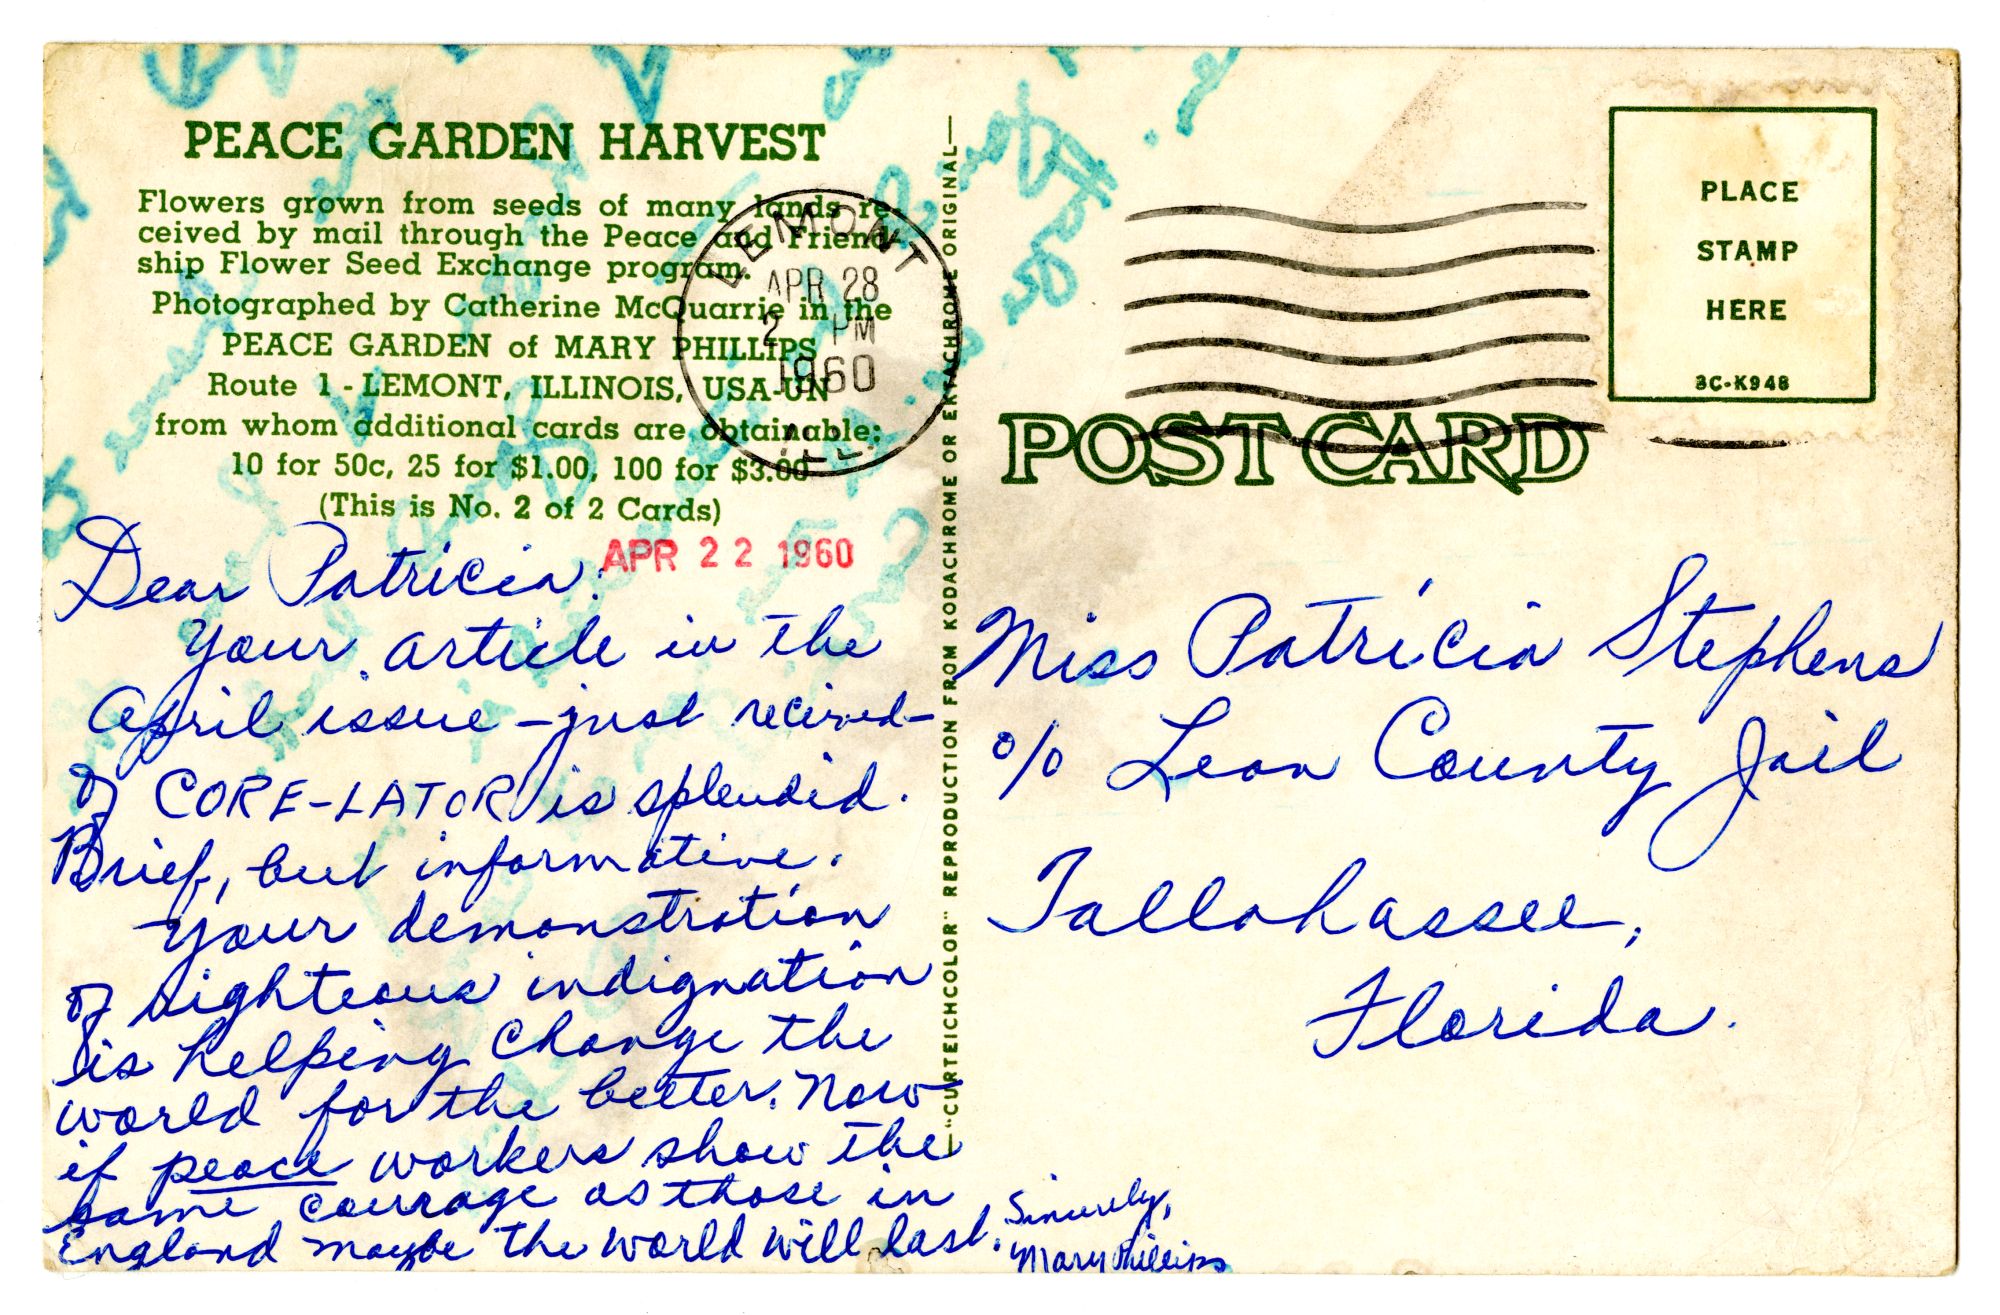 PEACE GARDEN HARVEST
Flowers grown from seeds of many lands re-
ceived by mail through the Peace and Friend-
ship Flower Seed Exchange program.
Photographed by Catherine McQuarrie in the
PEACE GARDEN of MARY PHILLIPS
Route 1 - LEMONT, ILLINOIS, USA-UN
from whom additional cards are obtainable:
10 for 50c, 25 for $1.00, 100 for $3.00
(This is No. 2 of 2 Cards)
LEMONT
APR 28
2 PM
1960
ILL.
APR 22 1960
Dear Patricia:
Your article in the
April issue – just recieved –
of CORE-LATOR is splendid.
Brief, but informative.
Your demonstration
of righteous indignation
is helping change the
world for the better. Now
if peace workers show the
same courage as those in
England maybe the world will last.
Sincerely,
Mary Phillips
"CURTEICHCOLOR" REPRODUCTION FROM KODACHROME OR EKTACHROME ORIGINAL
POST CARD
PLACE
STAMP
HERE
3C-K948
Miss Patricia Stephens
c/o Leon County Jail
Tallahassee,
Florida.